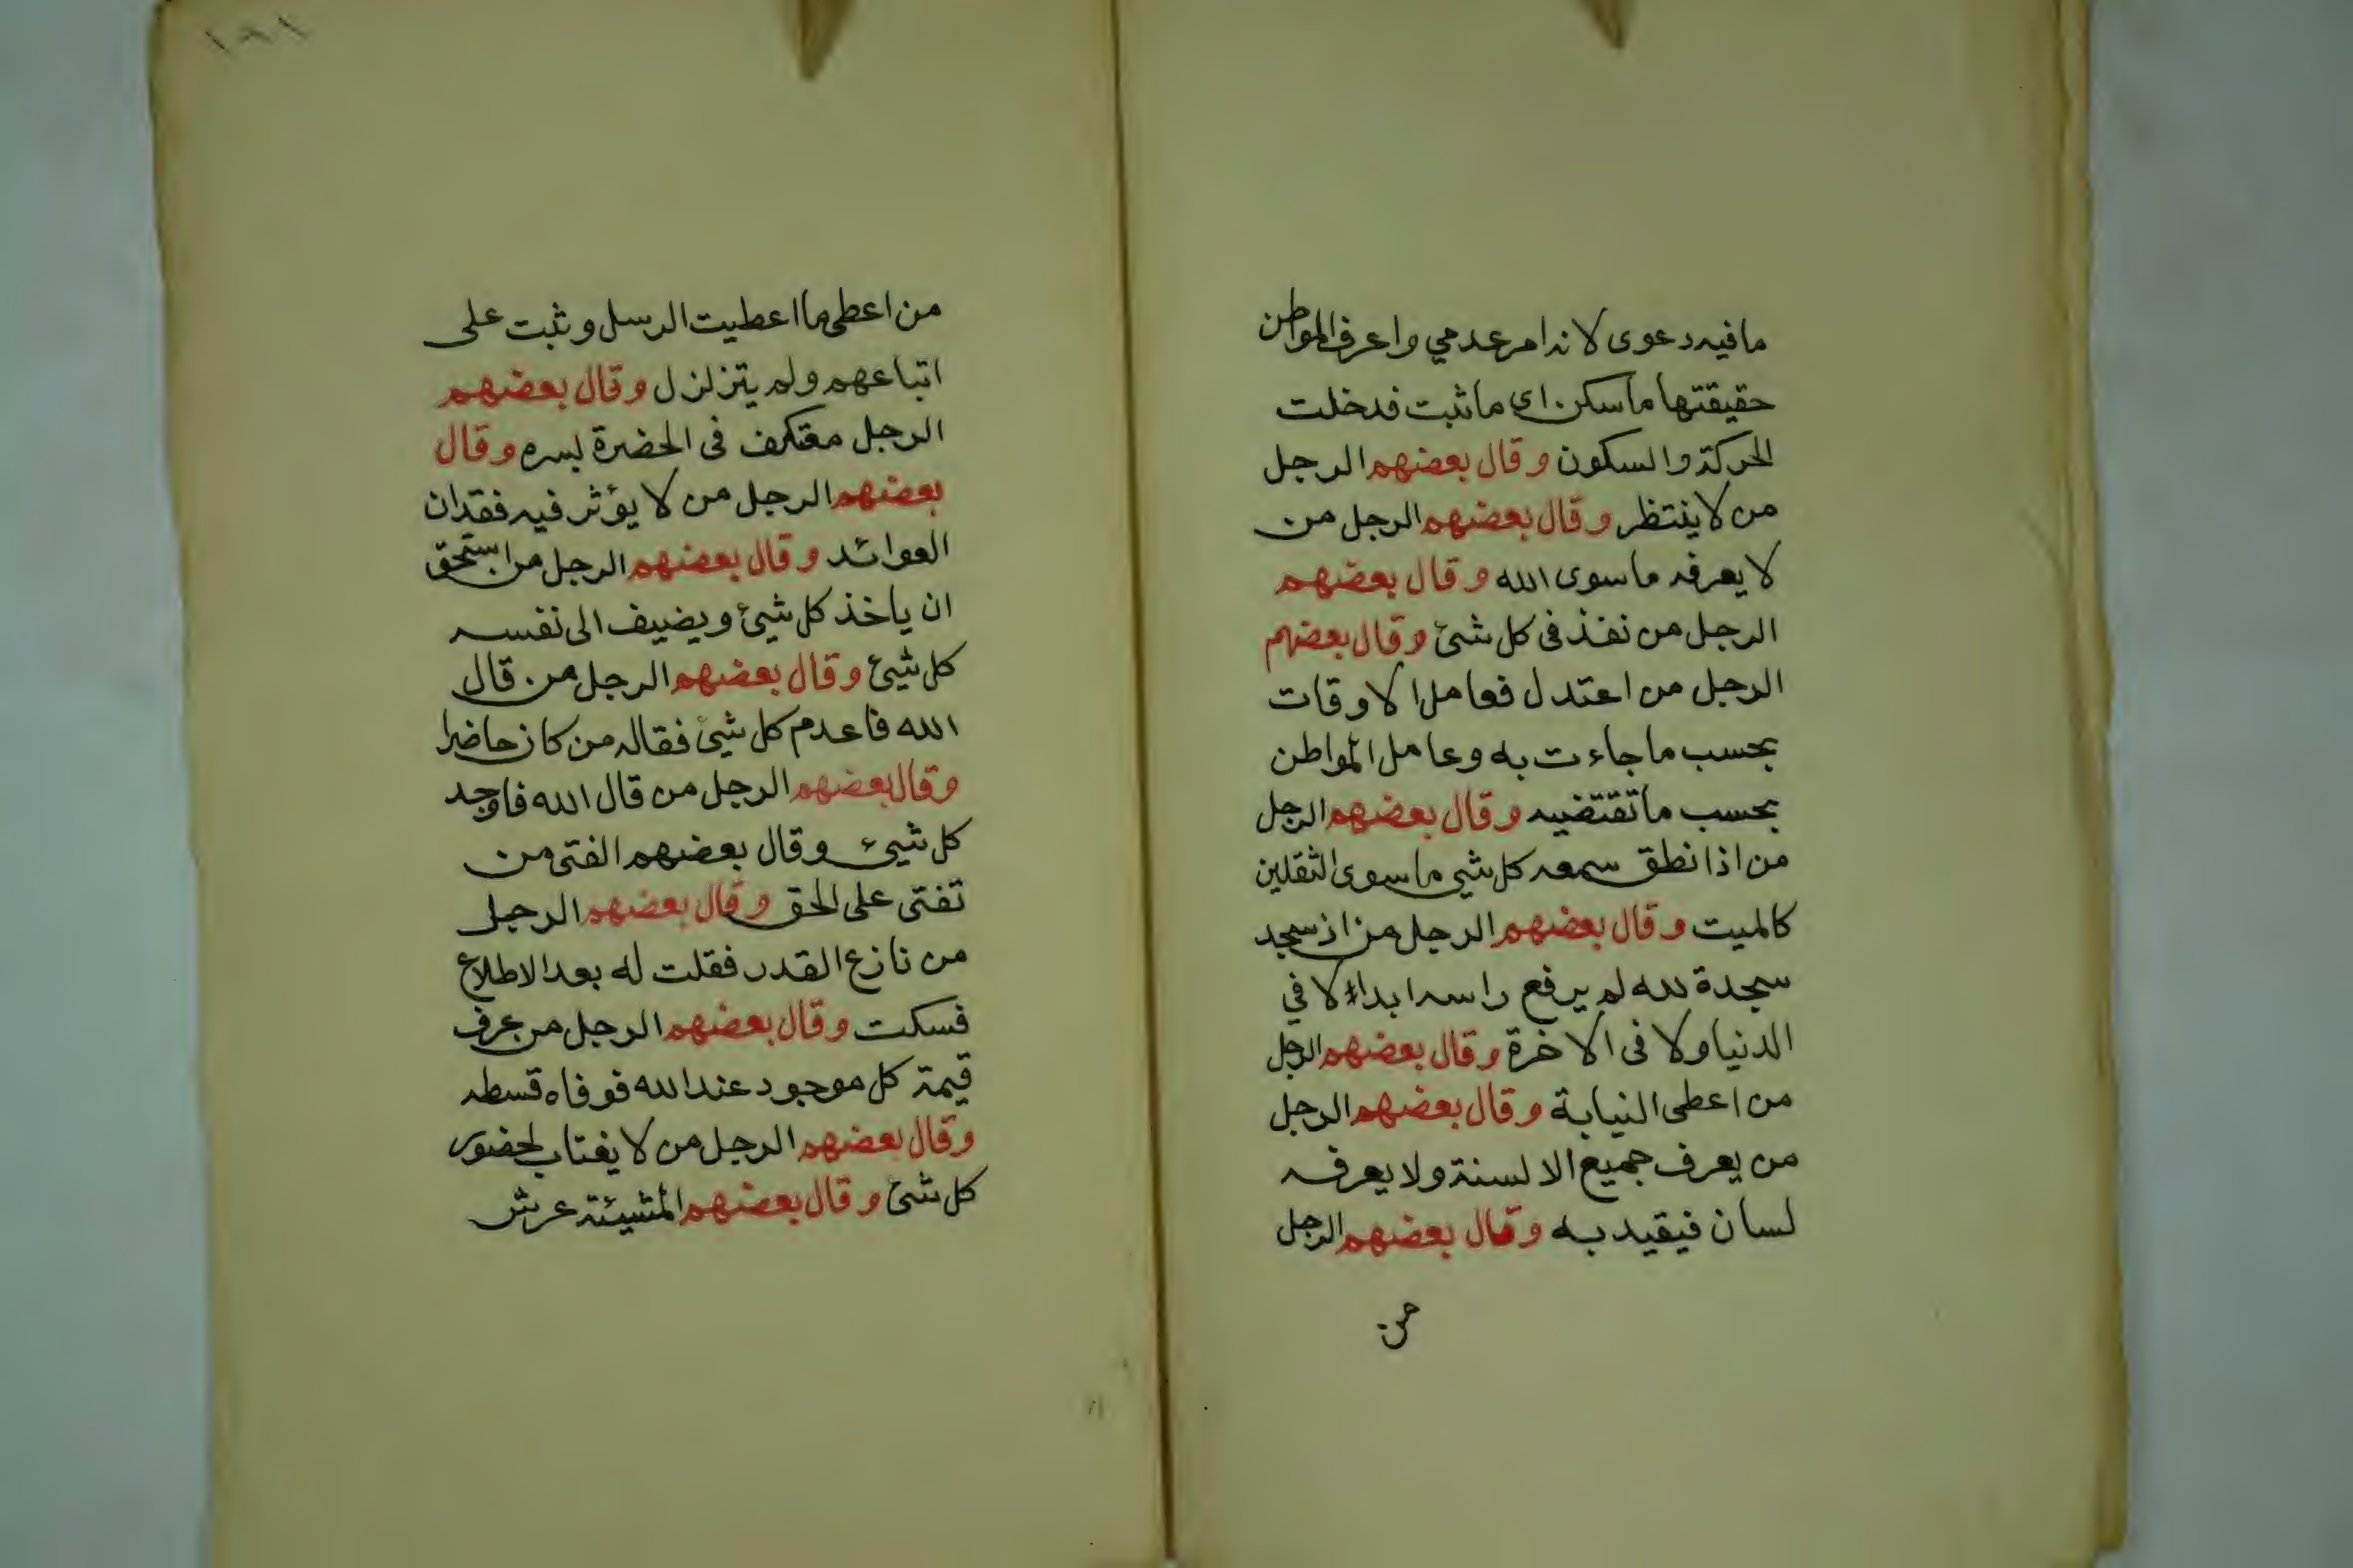 ما فيه دعوى لانه امر عدمي واعرف المواطن
حقيقتها ما سكن اى ما ثبت فدخلت
الحركة والسكون وقال بعضهم الرجل
من لا ينتظر وقال بعضهم الرجل من
لا يعرفه ما سوى الله وقال بعضهم
الرجل من نفذ فى كل شئ وقال بعضهم
الرجل من اعتدل فعامل الاوقات
بحسب ما جاءت به وعامل المواطن
بحسب ما تقتضيه وقال بعضهم الرجل
من اذا نطق سمعه كل شي ما سوى الثقلين
كالميت وقال بعضهم الرجل من اذ سجد
سجدة لله لم يرفع راسه ابداء لا في
الدنيا ولا فى الاخرة وقال بعضهم الرجل
من اعطى النيابة وقال بعضهم الرجل
من يعرف جميع الالسنة ولا يعرفه
لسان فيقيد به وقال بعضهم الرجل
من
١٨١
من اعطى ما اعطيت الرسل وثبت على
اتباعهم ولم يتزلزل وقال بعضهم
الرجل معتكف فى الحضرة بسره وقال
بعضهم الرجل من لا يؤثر فيه فقدان
العوائد وقال بعضهم الرجل من استحق
ان ياخذ كل شيئ ويضيف الى نفسه
كل شيئ وقال بعضهم الرجل من قال
الله فاعدم كل شيئ فقاله من كان حاضرا
وقال بعضهم الرجل من قال الله فاوجد
كل شيئ وقال بعضهم الفتى من
تفتى على الحق وقال بعضهم الرجل
من نازع القدر فقلت له بعد الاطلاع
فسكت وقال بعضهم الرجل من عرف
قيمة كل موجود عند الله فوفاه قسطه
وقال بعضهم الرجل من لا يغتاب لحضور
كل شئ وقال بعضهم المشيئة عرش